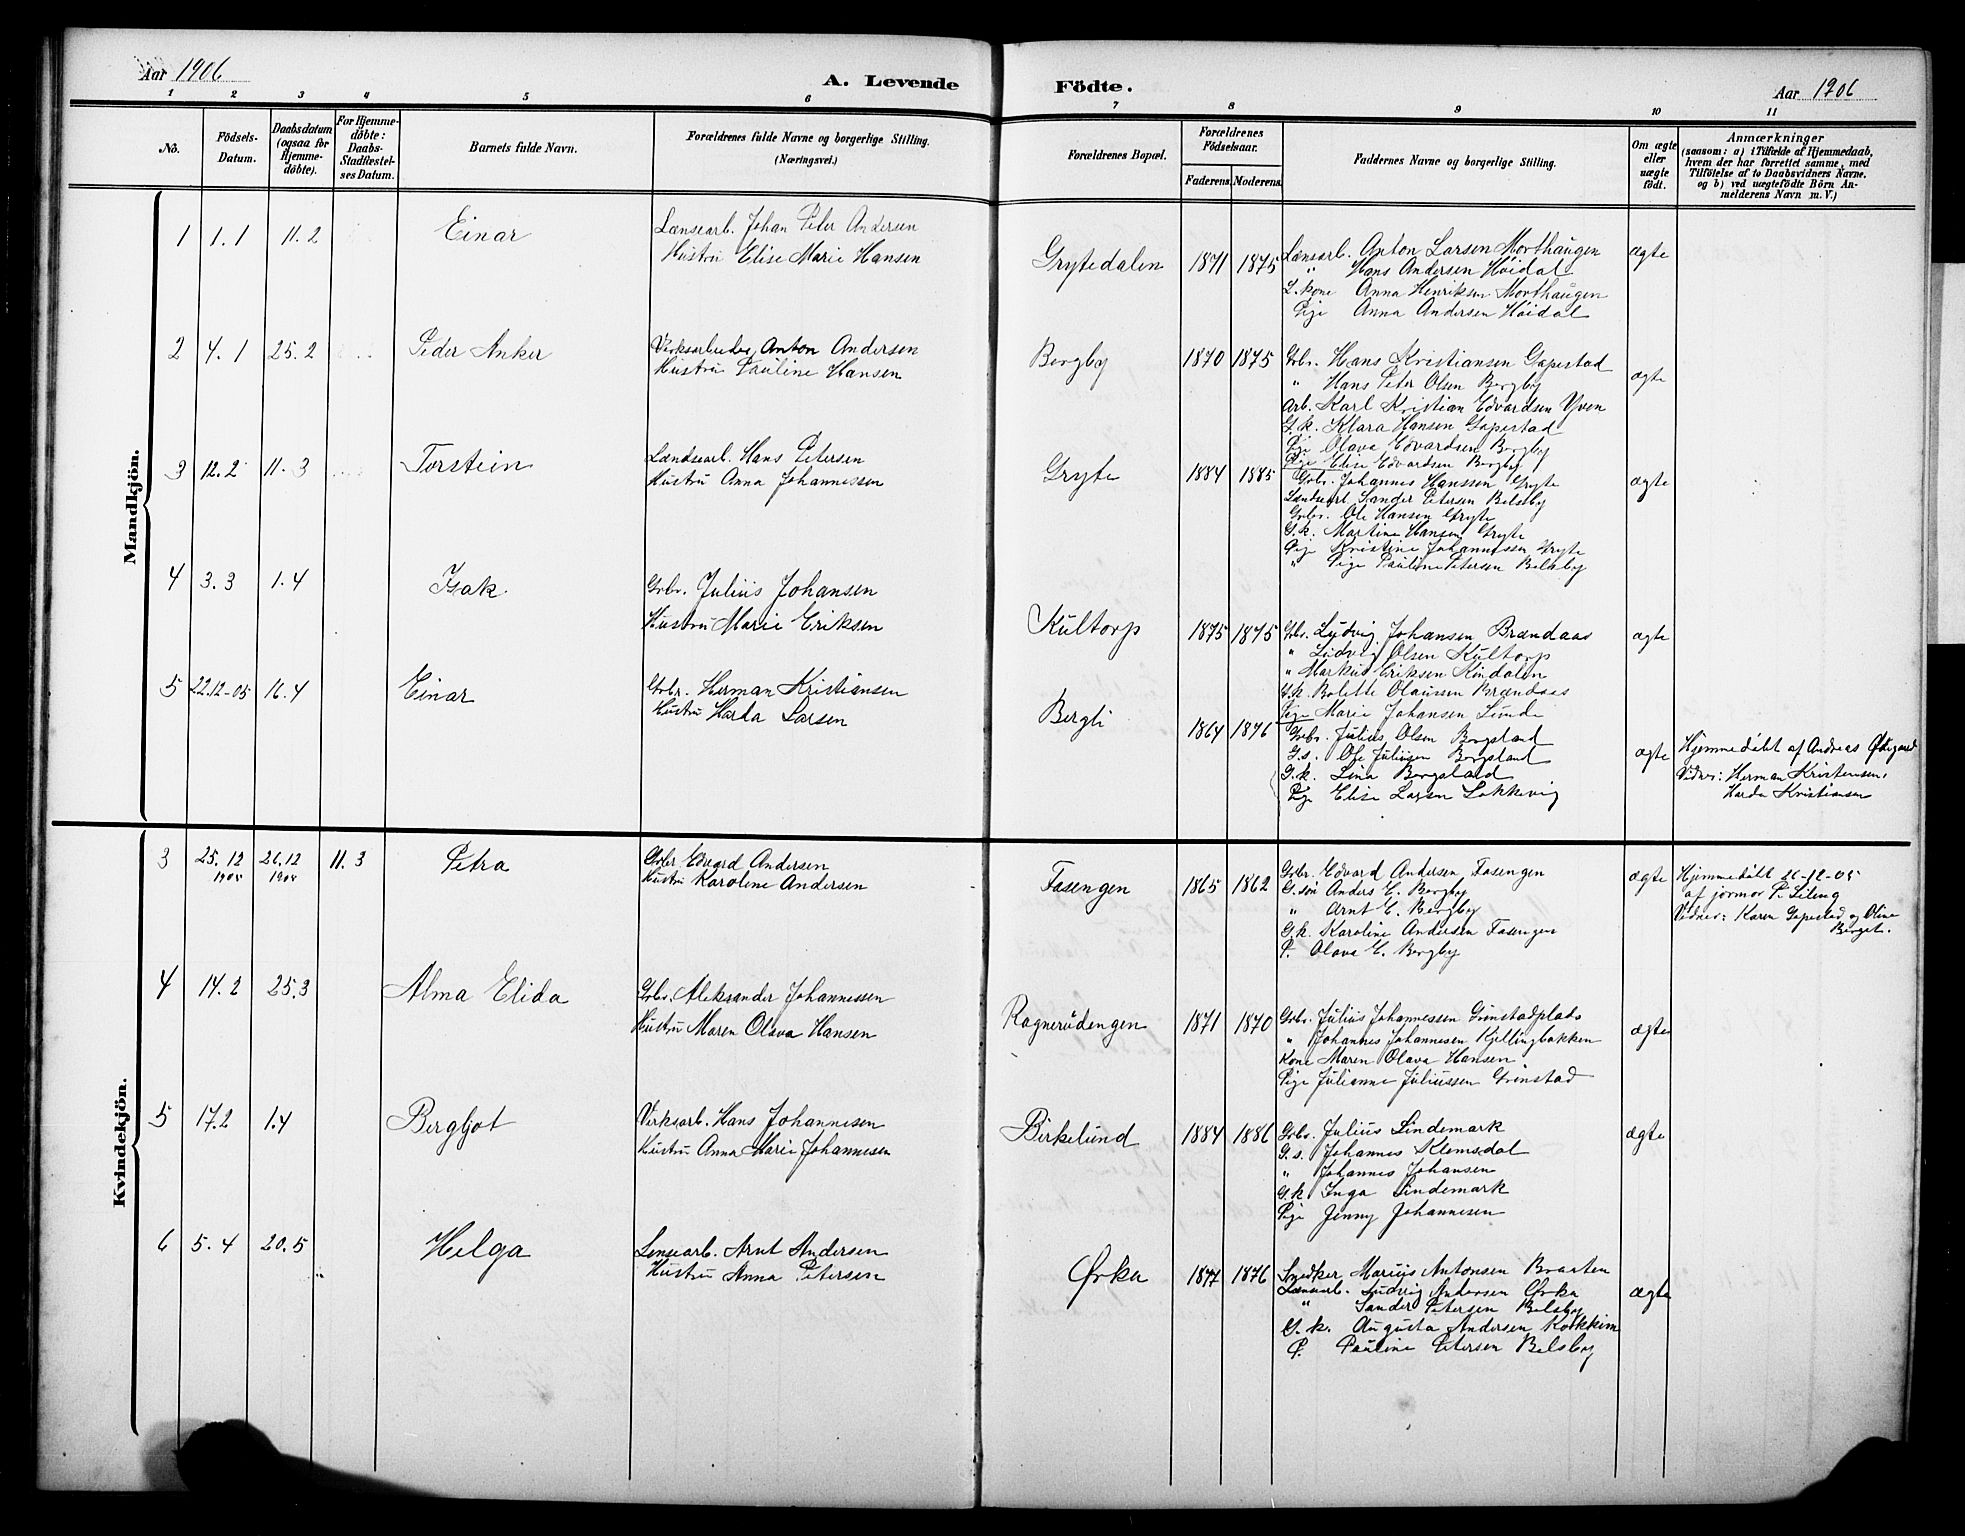 Aar 1906
A. Levende Födte.
Aar 1906
1 2 3 4 5 6 7 8 9 10 11
Nö.
Födsels-Datum.
Daabsdatum (ogsaa for Hjemme-döbte).
For Hjemme-döbte: Daabs-Stadfæstel-ses Datum.
Barnets fulde Navn.
Forældrenes fulde Navne og borgerlige Stilling. (Næringsvei.)
Forældrenes Bopæl.
Forældrenes Födselsaar.
Faderens. Moderens.
Faddernes Navne og borgerlige Stilling.
Om ægte eller uægte födt.
Anmærkninger (saasom: a) i Tilfælde af Hjemmedaab, hvem der har forrettet samme, med Tilföielse af to Daabsvidners Navne, og b) ved uægtefödte Börn An-melderens Navn m. V.)
Mandkjön.
1 1.1 11.2 Einar
Lænsearb. Johan Peter Andersen
Hustru Elise Marie Hansen
Grytedalen 1871 1875
Lænsearb. Anton Larsen Morthaugen
" Hans Andersen Höidal
G. kone Anna Henriksen Morthaugen
Pige Anna Andersen Höidal
ægte
2 4.1 25.2 Peder Anker
Verksarbeider Anton Andersen
Hustru Pauline Hansen
Bergby 1870 1875
Gbr. Hans Kristiansen Gapestad
" Hans Peter Olsen Bergby
Arb. Karl Kristian Edvardsen Yven
G. k. Klara Hansen Gapestad
Pige Olava Edvardsen Bergby
Pige Elise Edvardsen Bergby
ægte
3 12.2 11.3 Torstein
Lændsearb. Hans Petersen
Hustru Anna Johannessen
Gryte 1884 1885
Gbr. Johannes Hanssen Gryte
Lændsearb. Sander Petersen Belsby
Gbr. Ole Hansen Gryte
G. k. Martine Hansen Gryte
Pige Kristine Johannessen Gryte
" Pige Pauline Petersen Belsby
ægte
4 3.3 1.4 Isak
Gbr. Julius Johansen
Hustru Marie Eriksen
Kultorp 1875 1875
Gbr. Ludvig Johansen Brændaas
" Ludvig Olsen Kultorp
" Markus Eriksen Kindalen
G. k. Bolette Olaussen Brændaas
Pige Marie Johansen Lunde
ægte
5 22.12-05 16.4 Einar
Gbr. Herman Kristiansen
Hustru Harda Larsen
Bergli 1864 1876
Gbr. Julius Olsen Borgsland
G. s. Ole Juliussen Borgsland
G. k. Lina Borgsland
Pige Elise Larsen Lokkevig
ægte
Hjemmedöbt af Andreas Ødegaard
Vidner: Herman Kristensen,
Harda Kristiansen
Kvindekjön.
3 25.12 1905 26.12 1905 11.3 Petra
Gbr Edvard Andersen
Hustru Karoline Andersen
Fasengen 1865 1862
Gbr. Edvard Andersen Fasengen
G. sön Anders E. Bergby
" Arnt E. Bergby
G. k. Karoline Andersen Fasengen
P. Olava E. Bergby
ægte
Hjemmedöbt 26-12-05
af jormor P. Liling
Vidner: Karen Gapestad og Oline
Berget.
4 14.2 25.3 Alma Elida
Gbr. Aleksander Johannessen
Hustru Maren Olava Hansen
Ragnerudengen 1871 1870
Gbr. Julius Johannessen Grinstadplads
" Johannes Johannesen Kjellingbakken
Kone Maren Olava Hansen
Pige Julianne Juliussen Grinstad
ægte
5 17.2 1.4 Bergljot
Verksarb. Hans Johannesen
Hustru Anna Marie Johannesen
Birkelund 1884 1886
Gbr. Julius Lindemark
G. s. Johannes Klemsdal
" Johannes Johansen
G. k Inga Lindemark
Pige Jenny Johannesen
ægte
6 5.4 20.5 Helga
Lensearb. Arnt Andersen
Hustru Anna Petersen
Ørka 1877 1876
Snedker Marius Antonsen Braaten
Lænsearb. Ludvig Andersen Ørka
" Sander Petersen Belsby
G. k. Augusta Andersen Kokkim
P. Pauline Petersen Belsby
ægte